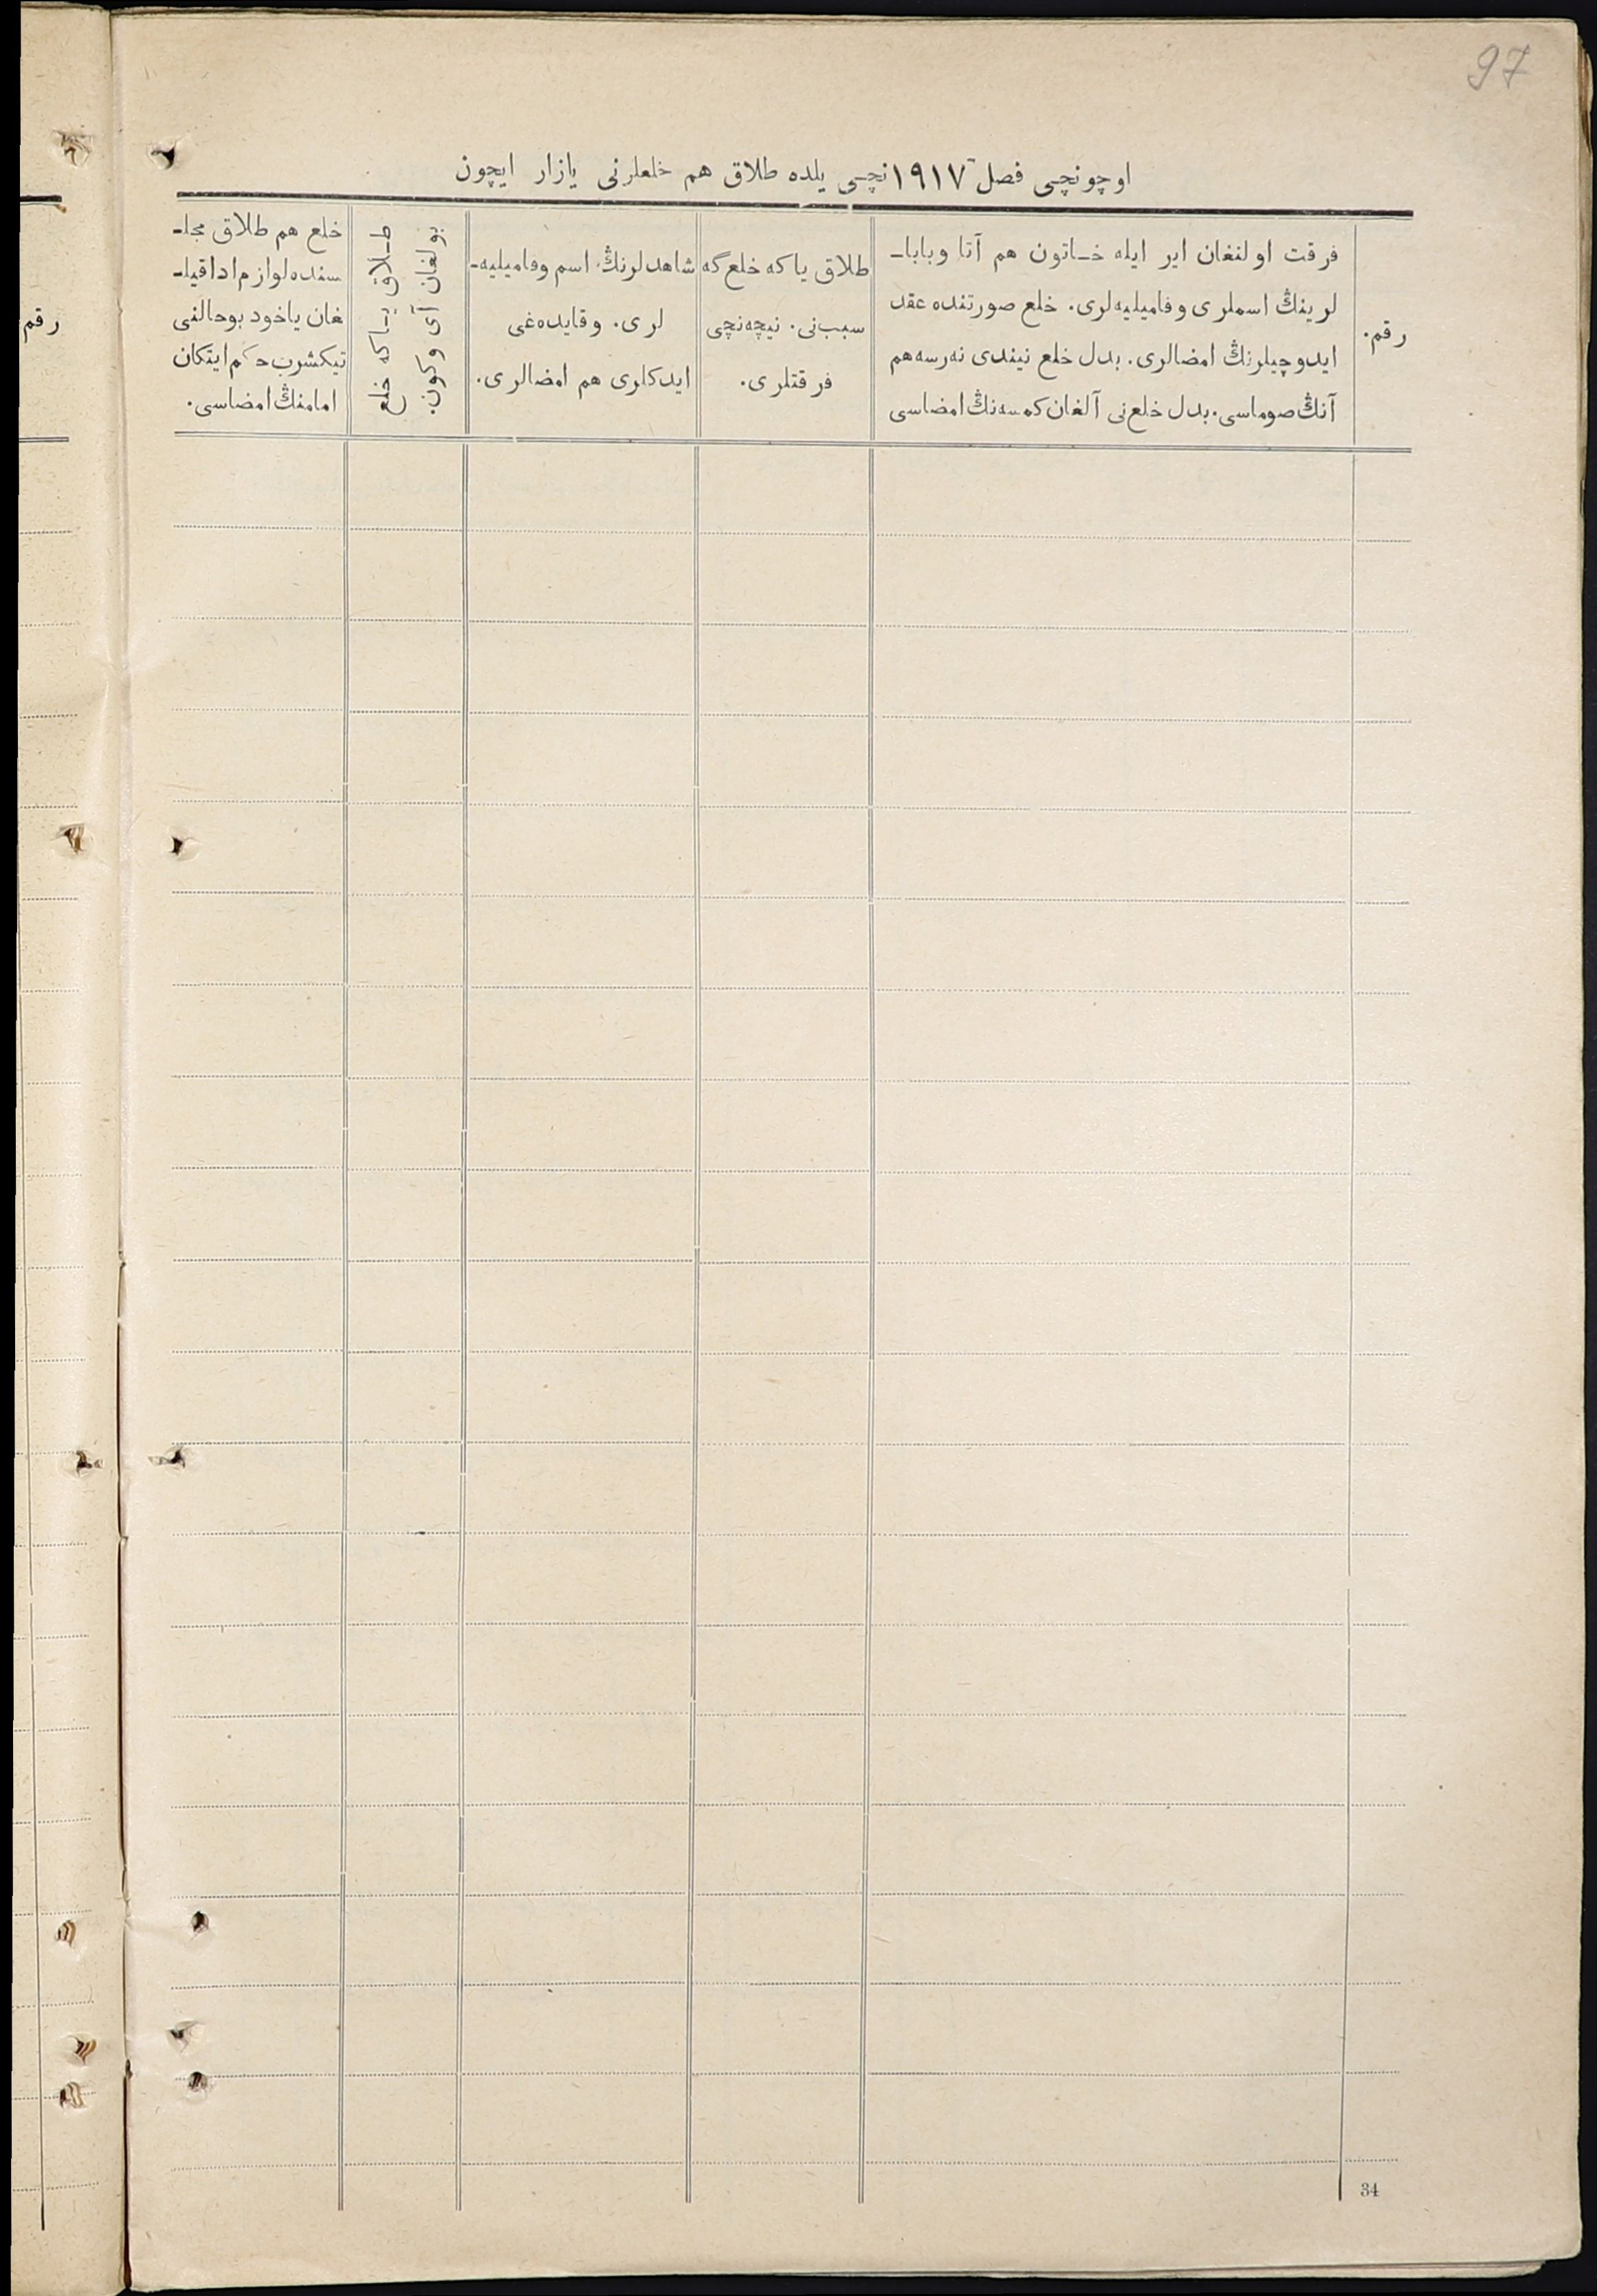 97
اوچونچی فصل ١٩١٧نچی یلده طلاق هم خلعلرنی یازار ایچون
رقم.
فرقت اولنغان ایر ایله خـاتون هم آتا وبابا-
لرینڭ اسملری وفامیلیه‌لری. خلع صورتنده عقد
ایدوچیلرنڭ امضالری. بدل خلع نیندی نه‌رسه هم
آنڭ صوماسی. بدل خلع‌نی آلغان کمسه‌نڭ امضاسی
طلاق یاکه خلع گه
سبب‌نی. نیچه‌نچی
فرقتلری.
شاهدلرنڭ اسم وفامیلیه-
لری. وقایده‌غی
ایدکلری هم امضالری.
طـلاق یـاکه خلع
بولغان آی وکون.
خلع هم طلاق مجلـ
سنده لوازم ادا قیلـ
غان یاخود بوحالنی
تیکشرب حکم ایتکان
امامنڭ امضاسی.
رقم
34